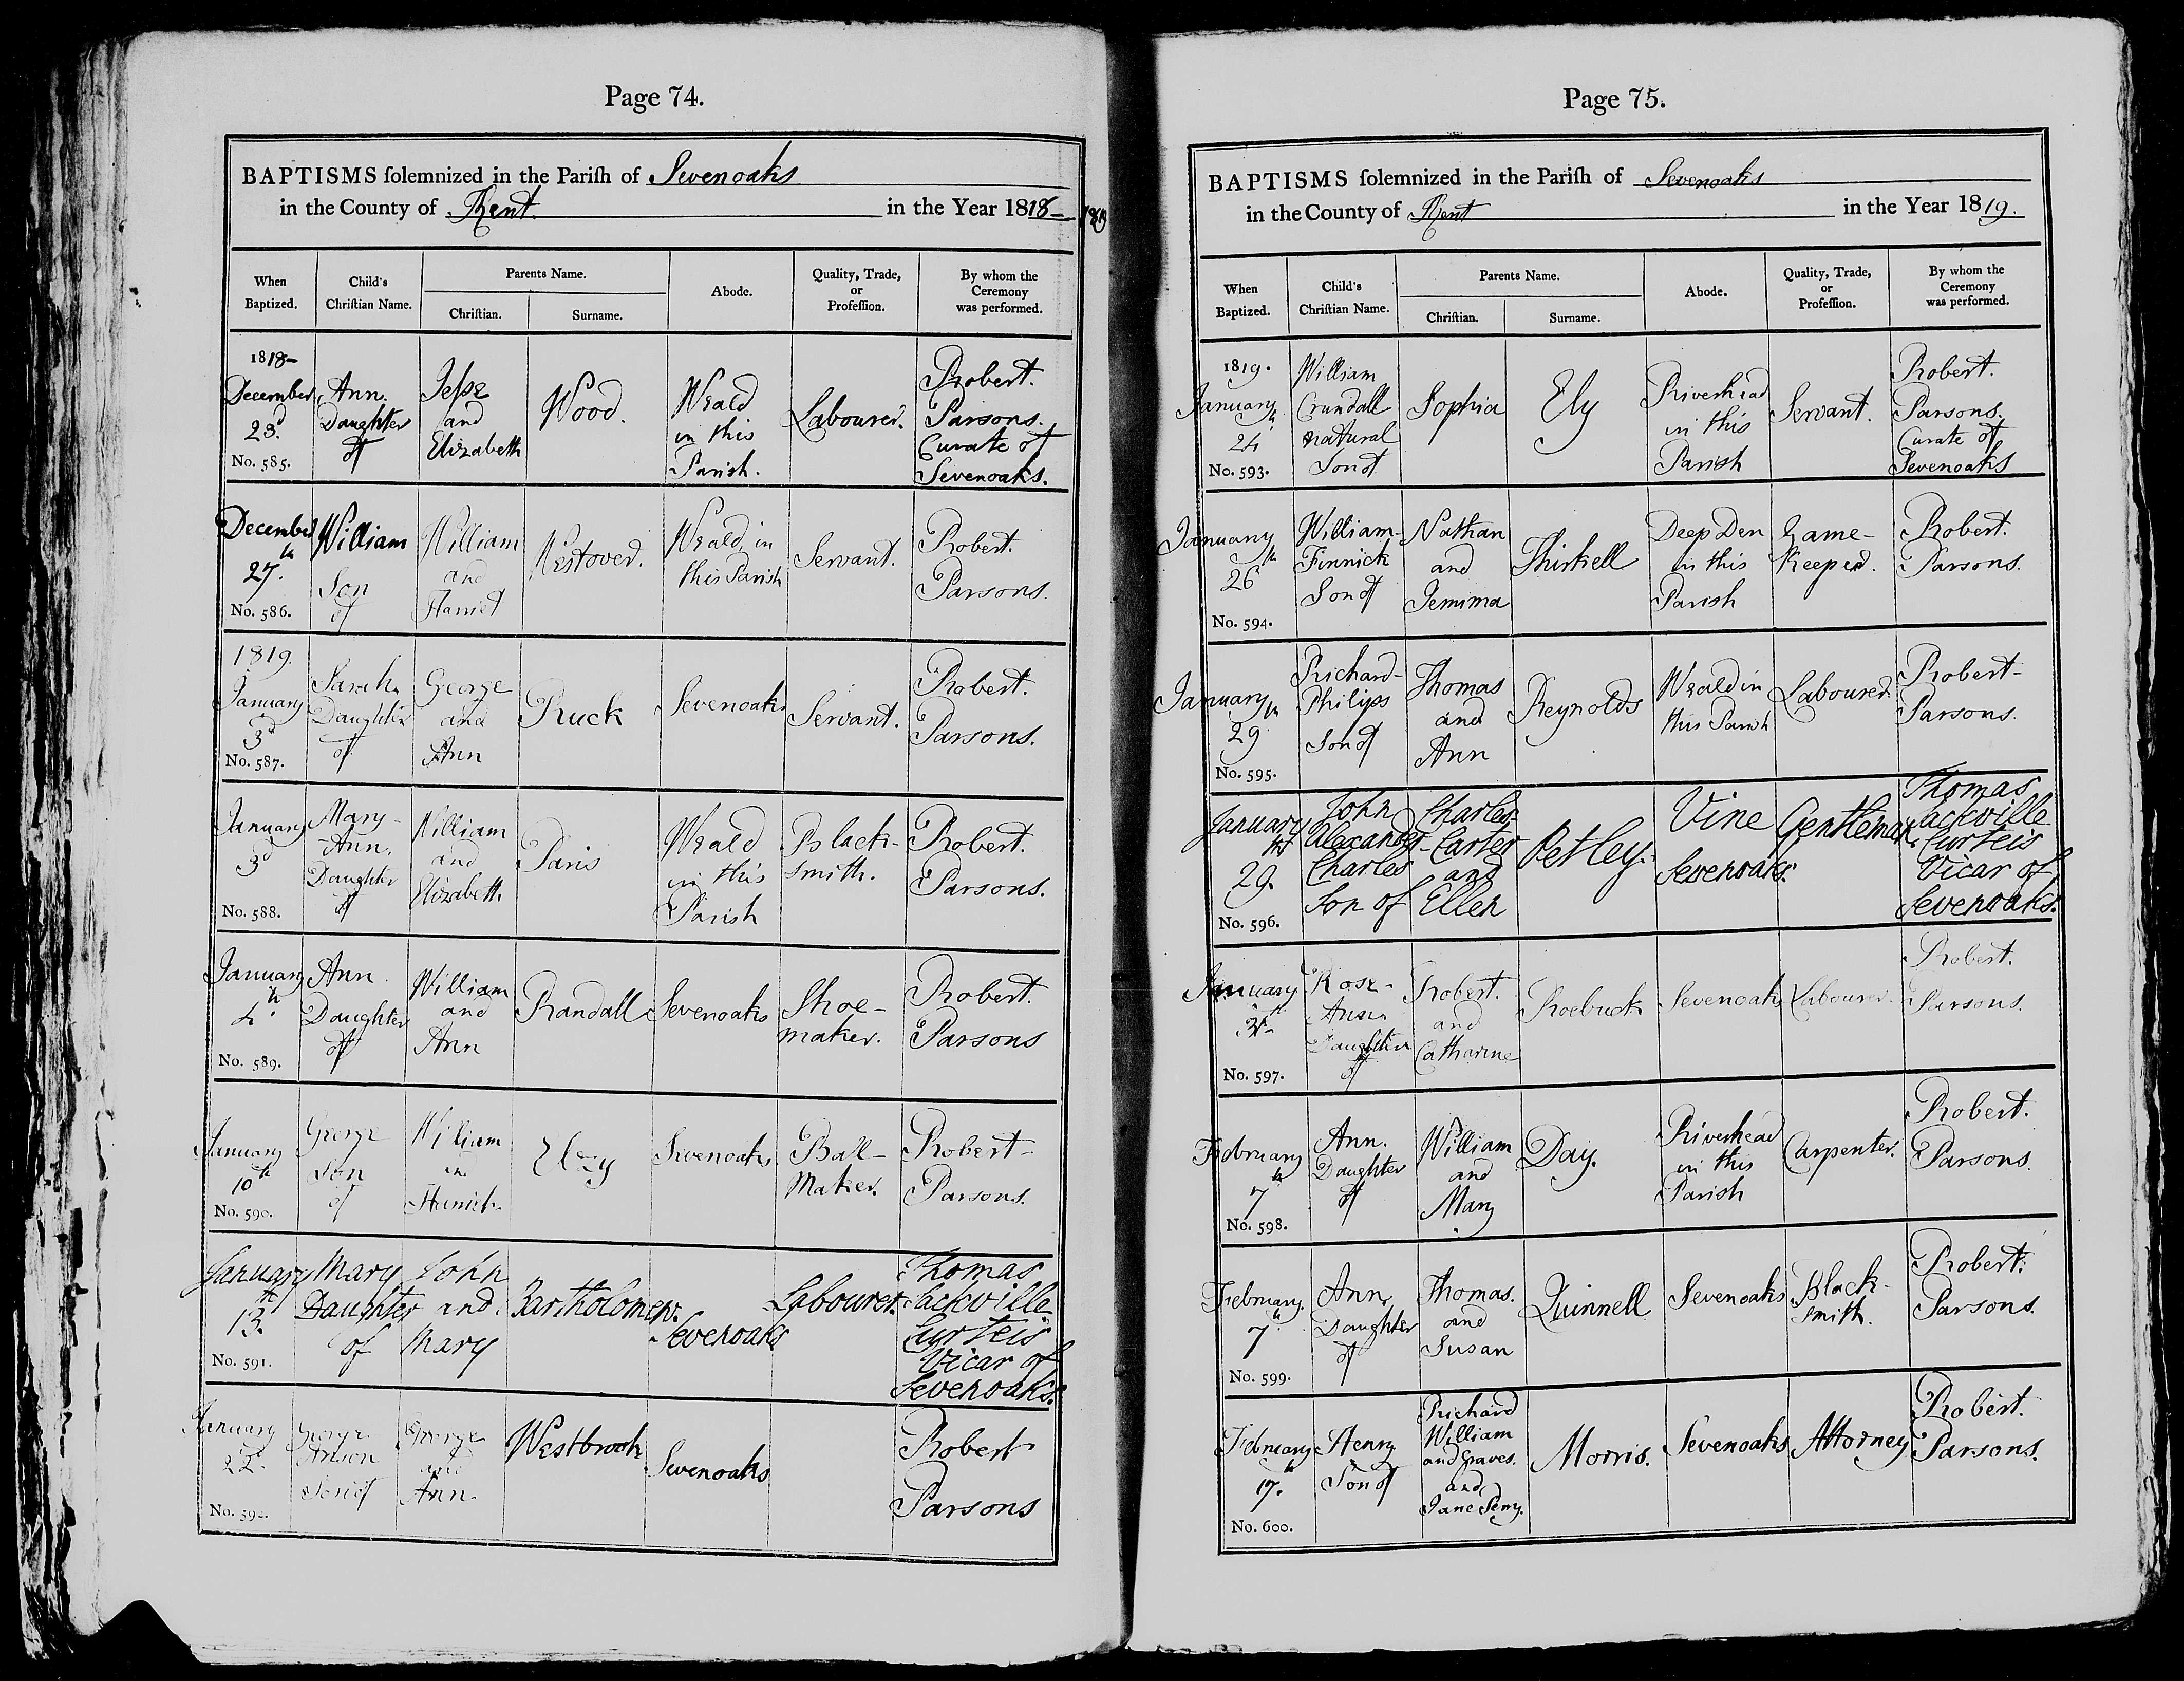 Page 74.
BAPTISMS ſolemnized in the Pariſh of Sevenoaks
in the County of Kent in the Year 1818 - 1819
When Baptized.
Child's Chriſtian Name.
Parents Name.
Chriſtian.
Surname.
Abode.
Quality, Trade, or Profeſſion.
By whom the Ceremony was performed.
1818-
December 23d
No. 585.
Ann. Daughter of
Jeſse and Elizabeth
Wood.
Weald in this Parish.
Labourer.
Robert. Parsons. Curate of Sevenoaks.
December 27th
No. 586.
William Son of
William and Harriet
Westover.
Weald in this Parish
Servant.
Robert. Parsons.
1819.
January 3d
No. 587.
Sarah Daughter of
George and Ann
Ruck
Sevenoaks
Servant.
Robert. Parsons.
January 3d
No. 588.
Mary-Ann. Daughter of
William and Elizabeth
Paris
Weald in this Parish
Blacksmith.
Robert. Parsons.
January 4th
No. 589.
Ann Daughter of
William and Ann
Randall
Sevenoaks
Shoe-maker.
Robert. Parsons
January 10th
No. 590.
George Son of
William
Sevenoaks
Ball-Maker.
Robert Parsons.
January 13th
No. 591.
Mary Daughter of
John and Mary
Bartholomew.
Sevenoaks
Labourer.
Thomas Sackville Curteis Vicar of Sevenoaks.
January 22
No. 592.
George Son of
George and Ann
Westbrook
Sevenoaks
Robert Parsons
Page 75.
BAPTISMS ſolemnized in the Pariſh of Sevenoaks
in the County of Kent in the Year 1819.
When Baptized.
Child's Chriſtian Name.
Parents Name.
Chriſtian.
Surname.
Abode.
Quality, Trade, or Profeſſion.
By whom the Ceremony was performed.
1819.
January 24
No. 593.
William Crundall natural Son of
Sophia
Ely
Riverhead in this Parish
Servant.
Robert. Parsons. Curate of Sevenoaks
January 26th
No. 594.
William-Finnick Son of
Nathan and Jemima
Thirkell
Deep Den in this Parish
Game-Keeper.
Robert. Parsons.
January 29th
No. 595.
Richard-Philips Son of
Thomas and Ann
Reynolds
Weald in this Parish
Labourer
Robert Parsons.
January 29th
No. 596.
John Alexander Charles Son of
Charles Carter and Ellen
Petley.
Vine Sevenoaks.
Gentleman.
Thomas Sackville Curteis Vicar of Sevenoaks.
January 31
No. 597.
Rose-Ann Daughter of
Robert. and Catharine
Roebuck
Sevenoaks
Labourer.
Robert. Parsons.
February 7th
No. 598.
Ann. Daughter of
William and Mary
Day.
Riverhead in this Parish
Carpenter.
Robert. Parsons.
February 7th
No. 599.
Ann Daughter of
Thomas. and Susan
Quinnell
Sevenoaks
Blacksmith.
Robert. Parsons.
February 17th
No. 600.
Henry Son of
Richard William and Graves. and Jane Perry.
Morris.
Sevenoaks
Attorney
Robert. Parsons.